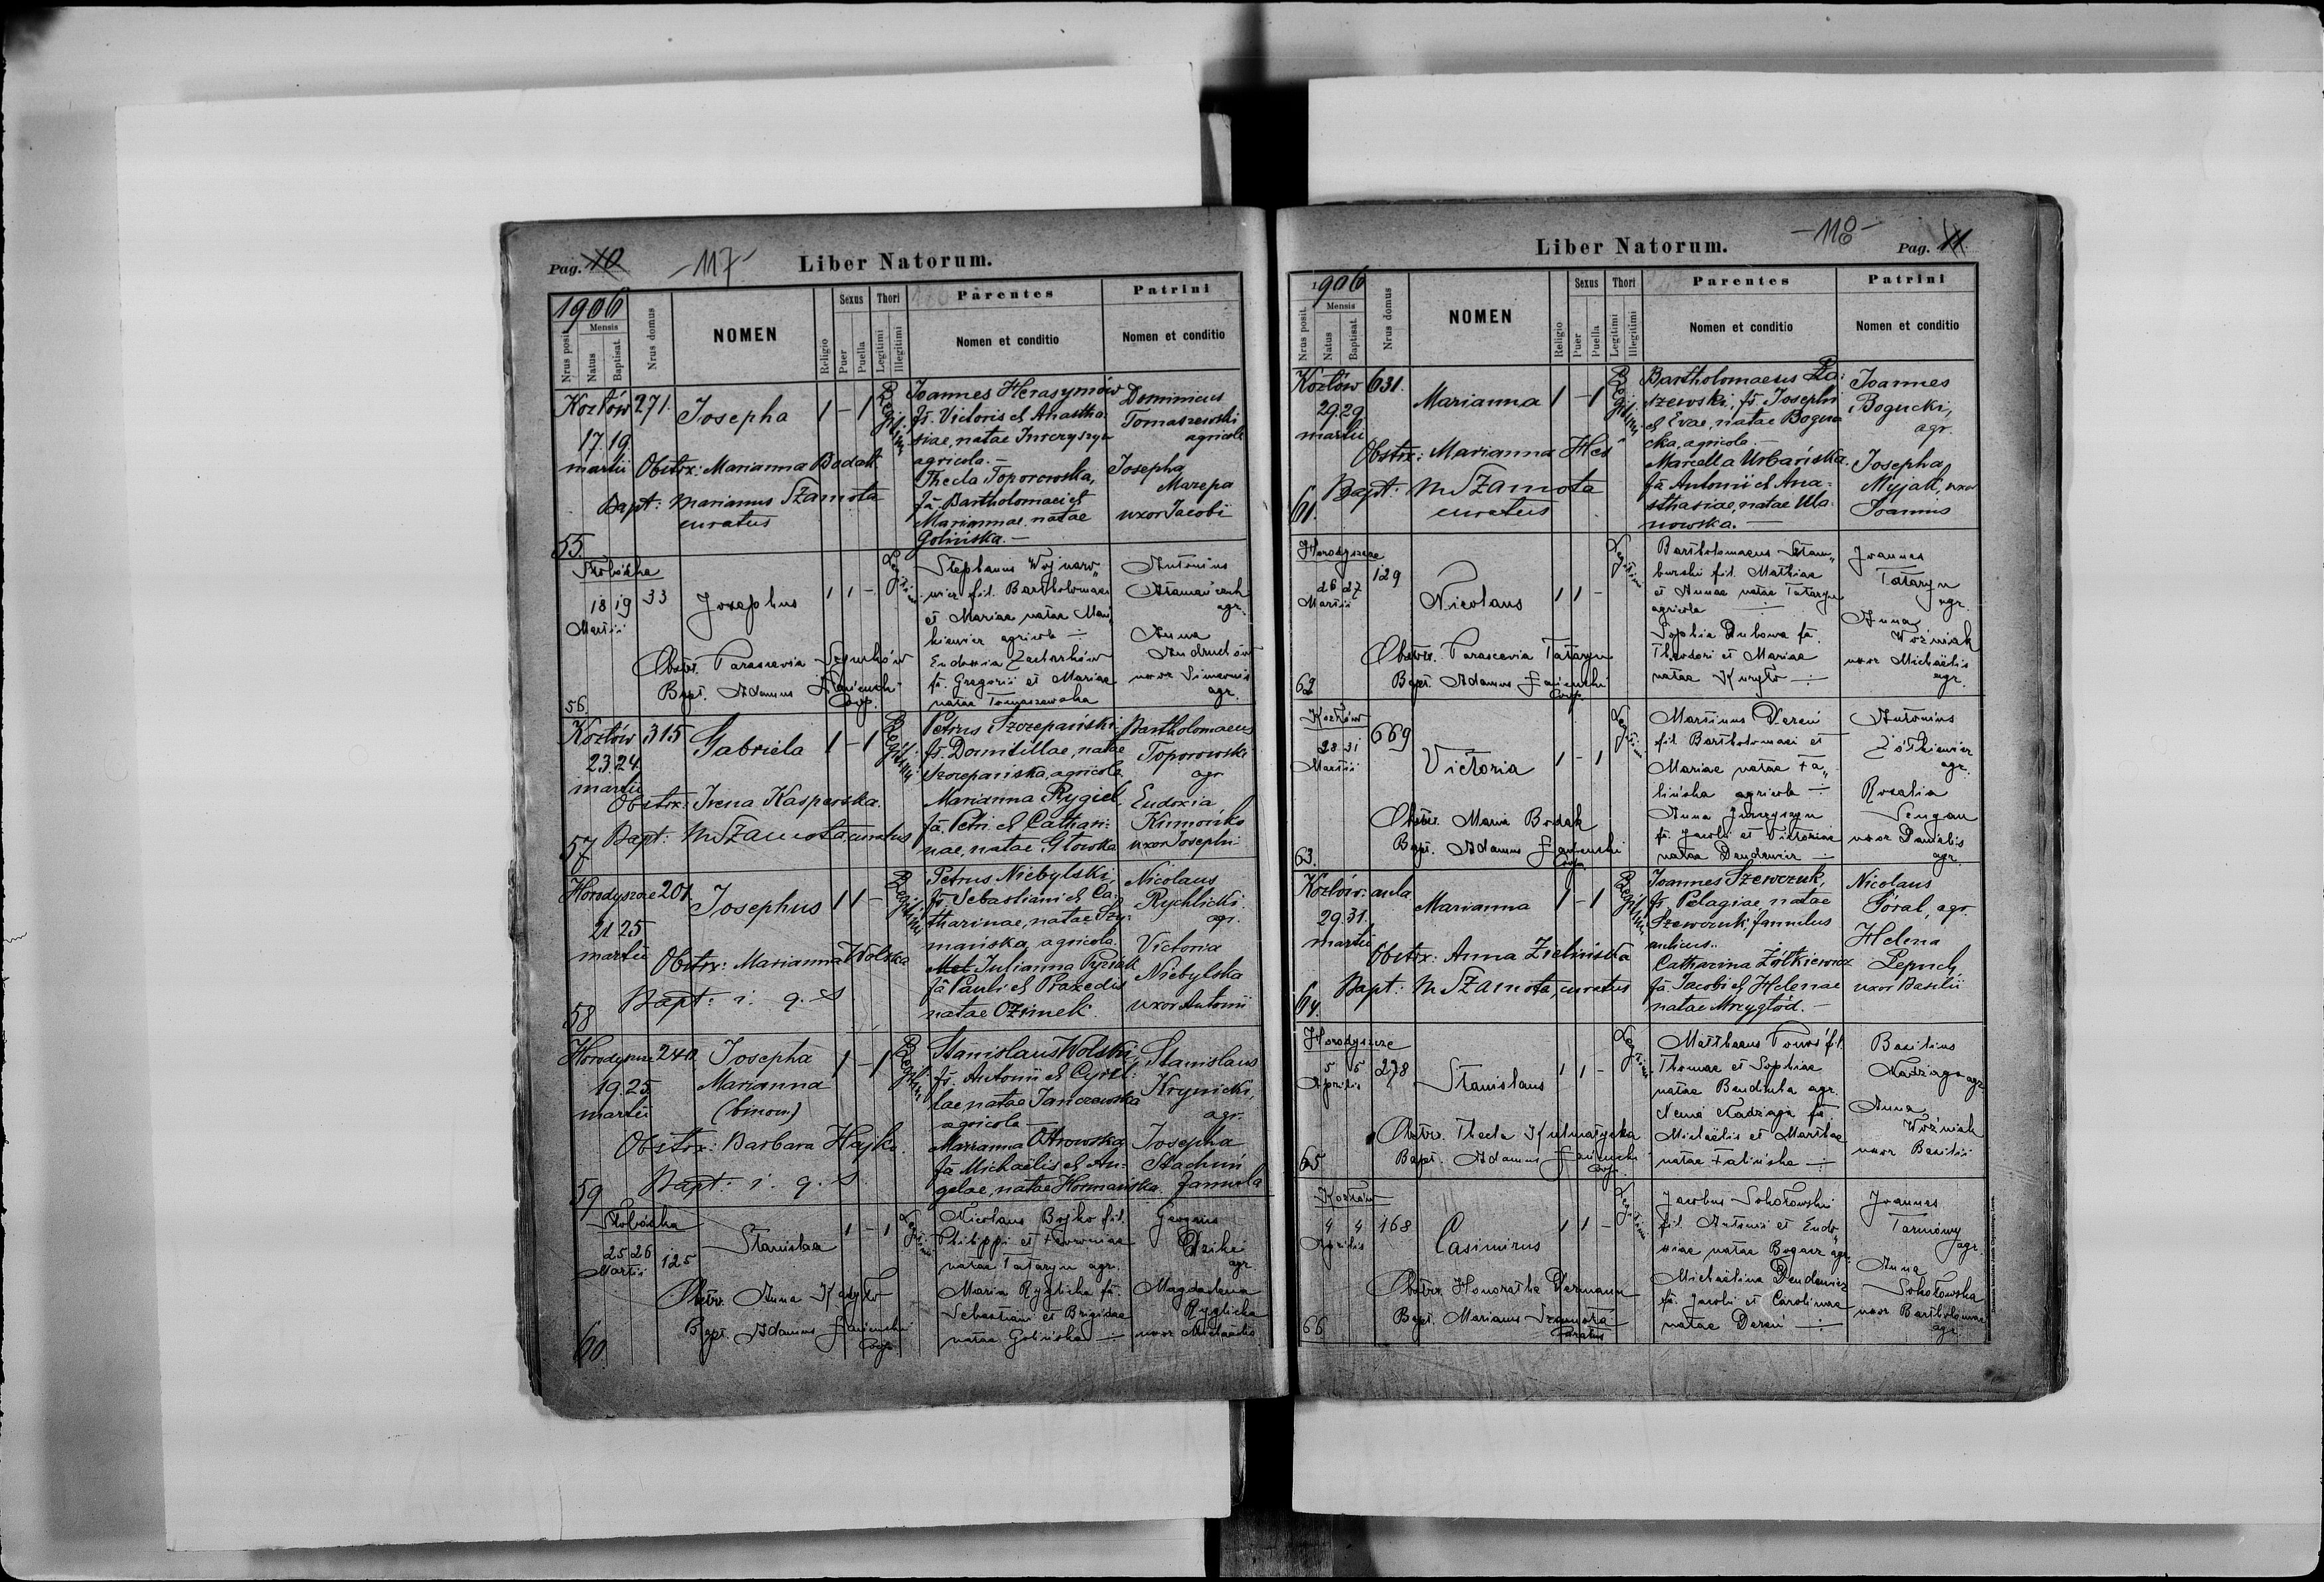 Pag. 10
-117-
Liber Natorum.
1906
Nrus posit.
Mensis
Natus
Baptisat.
Nrus domus
NOMEN
Religio
Sexus
Puer
Puella
Thori
Legitimi
Illegitimi
Parentes
Nomen et conditio
Patrini
Nomen et conditio
Kozłów 271. Josepha 1 - 1 Legitimi
17. 19
martii
Obstrx: Marianna Bodak
Bapt: Marianus Szamota
curatus
55.
Joannes Herasymów
fs. Victoris et Anastha
siae, natae
agricola. -
Thecla Toporowska,
fa. Bartholomaei et
Mariannae, natae
Golińska. -
Dominicus
Tomaszewski
agricola
Josepha
Mazepa
uxor Jacobi
Słobódka
18 19 33 Josephus 1 1 - Legitimi
Martii
Obstr. Parascevia
Bapt. Adamus
Coop.
56.
Stephanus Wojnaro„
wicz fil. Bartholomaei
et Mariae natae
agricola ÷
Eudoxia
fa. Gregorii et Mariae
natae Tomaszewska
Antonius
agr.
Anna
Andruchów
uxor Simeonis
agr.
Kozłów 315 Gabriela 1 - 1 Legitimi
23. 24.
martii
Obstrx: Irena Kasperska.
Bapt: M Szamota, curatus
57
Petrus Szczepański,
fs. Domitillae, natae
Szczepańska, agricola
Marianna Rygiel,
fa. Petri et Cathari-
nae, natae Głowska
Bartholomaeus
Toporowski
agr.
Eudoxia
uxor Josephi
Horodyszcze 201. Josephus 1 1 - Legitimi
21. 25
martii
Obstrx: Marianna Wolska
Bapt: i. q. s
58
Petrus Niebylski,
fs. Sebastiani et Ca-
tharinae, natae Szy-
mańska, agricola.
Julianna
fa Pauli et Praxedis
natae Ozimek.
Nicolaus
Rychlicki.
agr.
Victoria
Niebylska
uxor Antonii
Horodyszcze 240. Josepha 1 - 1 Legitimi
19. 25. Marianna
martii (binom.)
Obstrx: Barbara Hajko.
Bapt: i. q. s
59
Stanislaus Wolski,
fs. Antonii et Cyril-
lae, natae Janczewska
agricola -
Marianna Ostrowska
fa Michaëlis et An-
gelae, natae
Stanislaus
Krynicki,
agr.
Josepha
famula
Słobódka
25 26 125 Stanislaa 1 - 1 Legitimi
Martii
Obstr. Anna
Bapt. Adamus
Coop.
60.
Nicolaus Bojko fil.
Philippi et
natae Tataryn agr.
Maria Ryglicka fa.
Sebastiani et Brigidae
natae Golińska ÷
Georgius
agr
Magdalena
Ryglicka
uxor Michaëlis
-118-
Liber Natorum.
Pag. 11
1906
Nrus posit.
Mensis
Natus
Baptisat.
Nrus domus
NOMEN
Religio
Sexus
Puer
Puella
Thori
Legitimi
Illegitimi
Parentes
Nomen et conditio
Patrini
Nomen et conditio
Kozłów 631. Marianna 1 - 1 Legitimi
29. 29
martii
Obstrx: Marianna
Bapt: M Szamota
curatus
61.
Bartholomaeus
szewski, fs. Josephi
et Evae, natae Boguc
cka, agricola. -
Marcella Urbańska.
fa Antonii et Ana-
sthasiae, natae Ula-
nowska. -
Joannes
Bogucki,
agr.
Josepha
Myjak, uxor
Joannis
Horodyszcze
26 27 129 Nicolaus 1 1 - Legitimi
Martii
Obstr. Parascevia Tataryn
Bapt. Adamus
Coop.
62
Bartholomaeus Stam„
burski fil. Mathiae
et Annae natae Tataryn
agricola ÷
Sophia Dubowa fa.
Theodori et Mariae
natae Kuryło ÷
Joannes
Tataryn
agr.
Anna
Woźniak
uxor Michaëlis
agr.
Kozłów
28 31 669 Victoria 1 - 1 Legitimi
Martii
Obstr. Maria Bodak
Bapt. Adamus
Coop.
63.
Martinus Dereń
fil Bartholomaei et
Mariae natae Fa„
lińska agricola ÷
Anna
fa. Jacobi et Victoriae
natae Dendewicz ÷
Antonius
Żółkiewicz
agr.
Rosalia
Sengan
uxor Danielis
agr.
Kozłów: aula Marianna 1 - 1 Legitimi
29. 31.
martii
Obstrx: Anna Zielińska
Bapt: M Szamota, curatus
64.
Joannes Szewczuk,
fs. Pelagiae, natae
Szewczuk, famulus
aulicus..
Catharina Żółkiewicz
fa Jacobi et Helenae
natae Mrzygłód. -
Nicolaus
Góral, agr.
Helena
Lepuch,
uxor Basilii
Horodyszcze
5 5 278 Stanislaus 1 1 - Legitimi
Aprilis
Obstr. Thecla Kulmatycka
Bapt. Adamus
Coop.
65
Matthaeus fil.
Thomae et Sophiae
natae Bendiuha agr.
Nadziaga fa.
Michaëlis et Marthae
natae Falińska ÷
Basilius
Nadziaga agr
Anna
Woźniak
uxor Basilii
Kozłów
4 4 168 Casimirus 1 1 - Legitimi
Aprilis
Obstr. Honoratha Dermann
Bapt. Marianus Szamota
Curatus
66
Jacobus Sokołowski
fil. Antonii et Eudo„
xiae natae Bogacz agr.
Michaëlina Dendewicz
fa. Jacobi et Carolinae
natae Dereń ÷
Joannes
Tarnowy
agr.
Anna
Sokołowska
uxor Bartholomaei
agr.